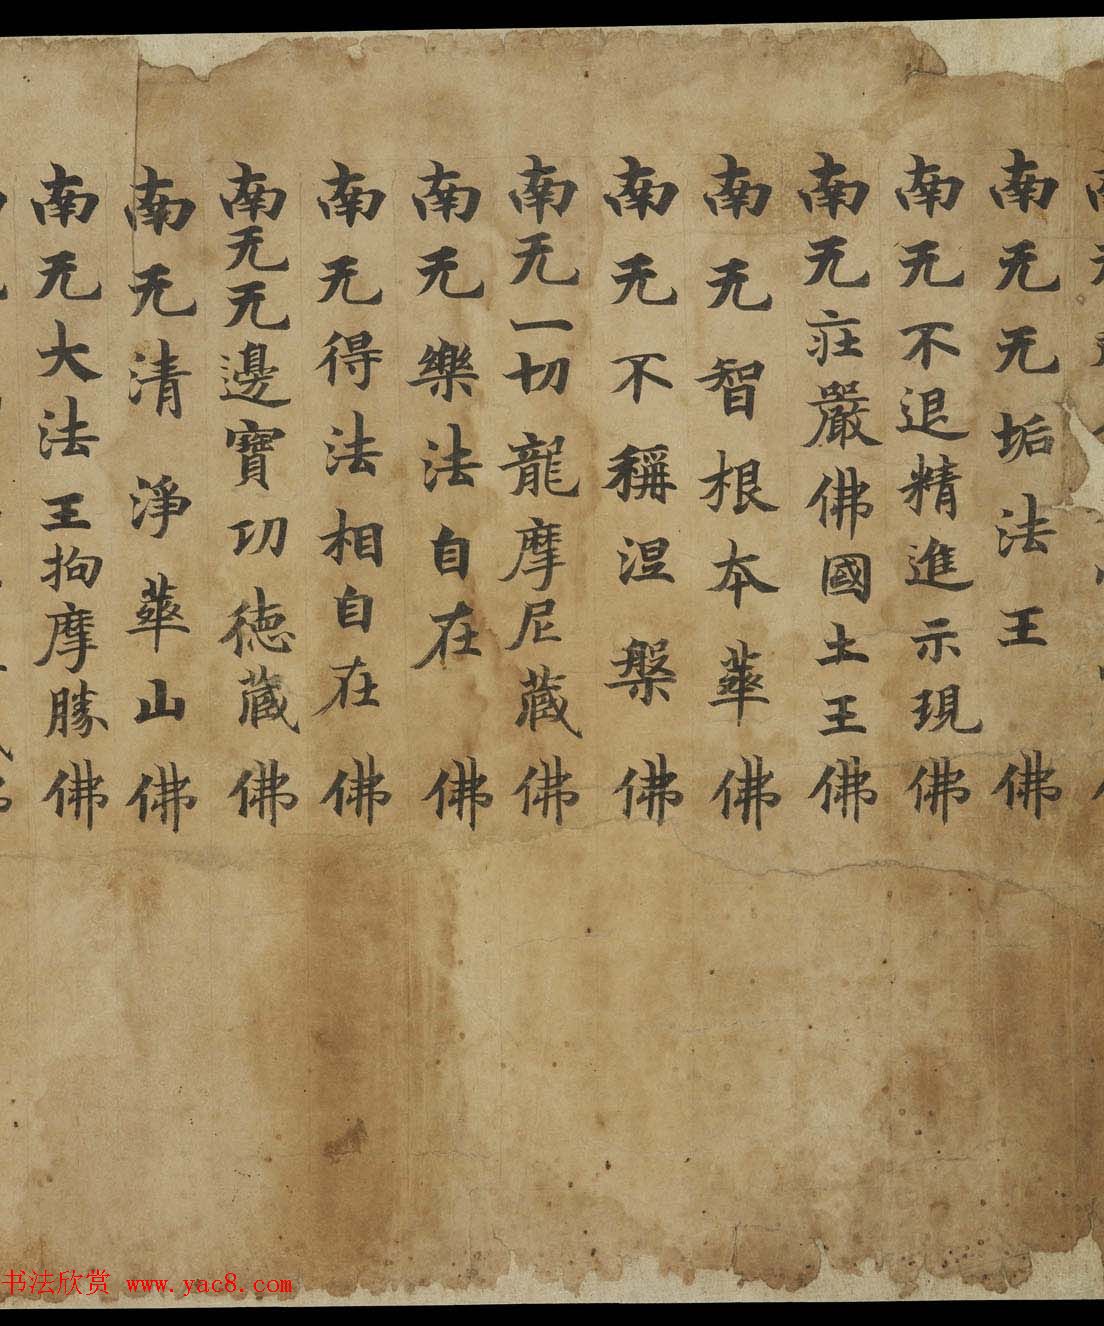 南无无垢法王佛
南无不退精進示現佛
南无莊嚴佛國土王佛
南无智根本華佛
南无不稱涅槃佛
南无一切龍摩尼藏佛
南无樂法自在佛
南无得法相自在佛
南无无邊寶功德藏佛
南无清淨華山佛
南无大法王拘摩勝佛
书法欣赏 www.yac8.com